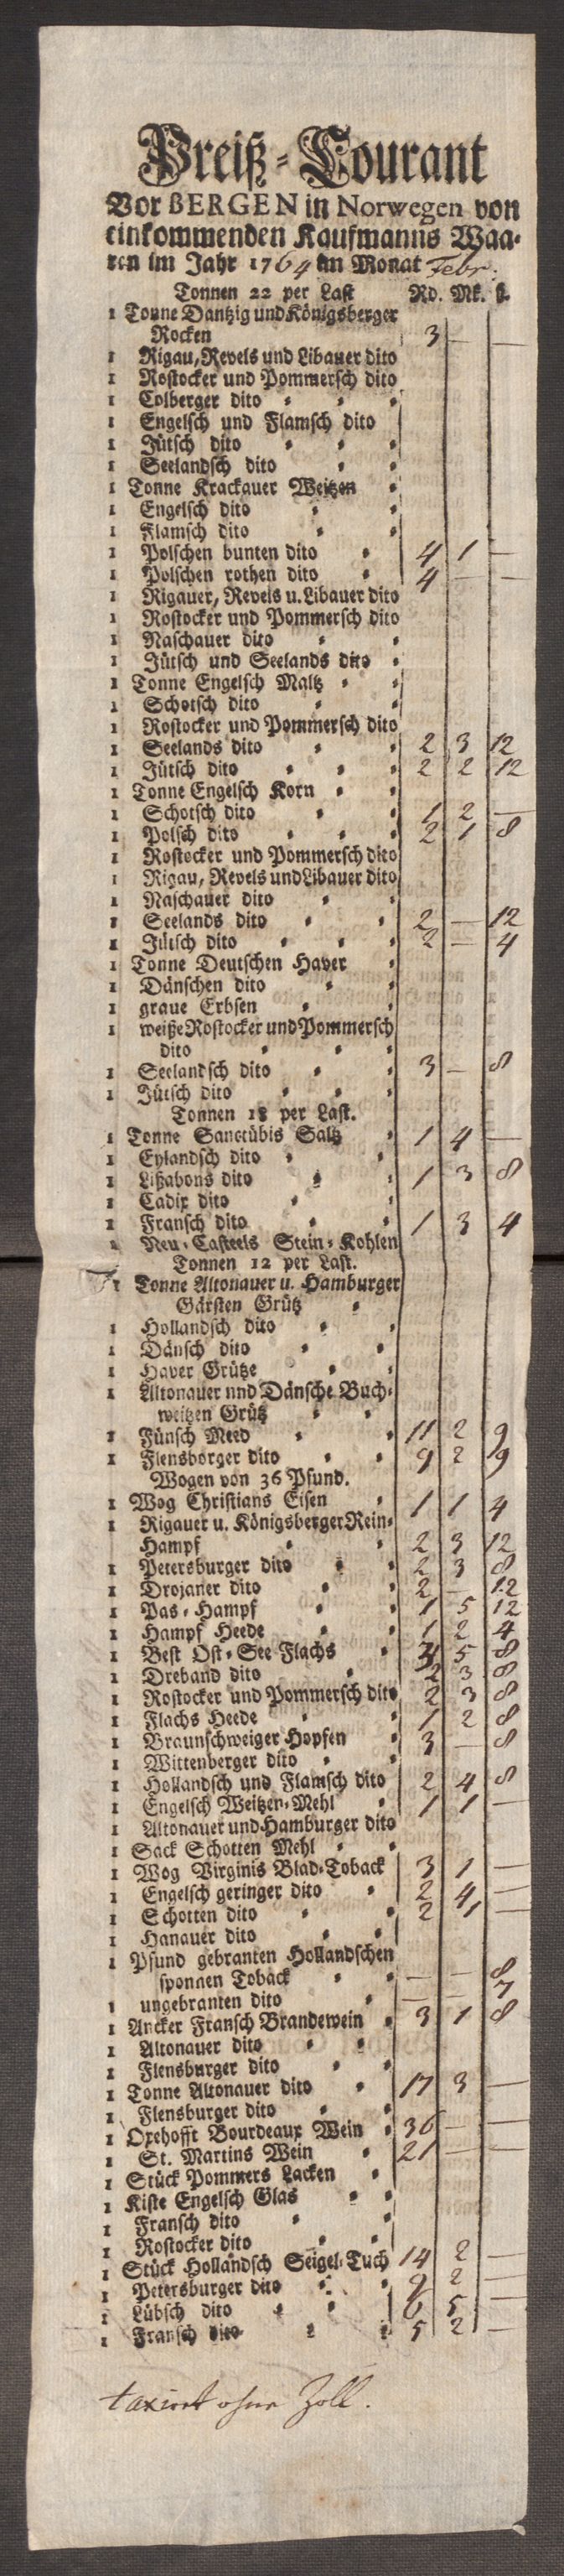 Preiß-Courant
Vor BERGEN in Norwegen von
einkommenden Kaufmanns Waa-
ren im Jahr 1764 im Monat Febr.
Tonnen 22 per Last Rd. Mk. ß.
1 Tonne Dantzig und Königsberger
Rocken 3 — —
1 Rigau, Revels und Libauer dito
1 Rostocker und Pommersch dito
1 Colberger dito
1 Engelsch und Flamsch dito
1 Jütsch dito
1 Seelandsch dito
1 Tonne Krackauer Weitzen
1 Engelsch dito
1 Flamsch dito
1 Polschen bunten dito 4 1 —
1 Polschen rothen dito 4 — —
1 Rigauer, Revels u. Libauer dito
1 Rostocker und Pommersch dito
1 Naschauer dito
1 Jütsch und Seelands dito
1 Tonne Engelsch Maltz
1 Schotsch dito
1 Rostocker und Pommersch dito
1 Seelands dito 2 3 12
1 Jütsch dito 2 2 12
1 Tonne Engelsch Korn
1 Schotsch dito 1 2 —
1 Polsch dito 2 1 8
1 Rostocker und Pommersch dito
1 Rigau, Revels und Libauer dito
1 Naschauer dito
1 Seelands dito 2 — 12
1 Jütsch dito 2 — 4
1 Tonne Deutschen Haver
1 Dänschen dito
1 graue Erbsen
1 weiße Rostocker und Pommersch
dito
1 Seelandsch dito 3 — 8
1 Jütsch dito
Tonnen 18 per Last.
1 Tonne Sanctübis Saltz 1 4 —
1 Eylandsch dito
1 Lißabons dito 1 3 8
1 Cadix dito
1 Fransch dito 1 3 4
1 Neu-Casteels Stein-Kohlen
Tonnen 12 per Last.
1 Tonne Altonauer u. Hamburger
Gärsten Grütz
1 Hollandsch dito
1 Dänsch dito
1 Haver Grütze
1 Altonauer nnd Dänsche Buch-
weitzen Grütz
1 Fünsch Meed 11 2 9
1 Flensborger dito 9 2 9
Wogen von 36 Pfund.
1 Wog Christians Eisen 1 1 4
1 Rigauer u. Königsberger Rein-
Hampf 2 3 12
1 Petersburger dito 2 3 8
1 Drojaner dito 2 — 12
1 Pas-Hampf 1 5 12
1 Hampf Heede 1 2 4
1 Best Ost-See Flachs 3 5 8
1 Dreband dito 3 8
1 Rostocker und Pommersch dito 2 3 8
1 Flachs Heede 1 2 8
1 Braunschweiger Hopfen 3 — 8
1 Wittenberger dito
1 Hollandsch und Flamsch dito 2 4 8
1 Engelsch Weitzen-Mehl 1 1 —
1 Altonauer und Hamburger dito
1 Sack Schotten Mehl
1 Wog Virginis Blad-Toback 3 1 —
1 Engelsch geringer dito 2 4 —
1 Schotten dito 2 1 —
1 Hanauer dito
1 Pfund gebranten Hollandschen
sponnen Toback — — 8
1 ungebranten dito — — 7
1 Ancker Fransch Brandewein 3 1 8
1 Altonauer dito
1 Flensburger dito
1 Tonne Altonauer dito 17 3 —
1 Flensburger dito
1 Oxehofft Bourdeaux Wein 36 — —
1 St. Martins Wein 21 — —
1 Stück Pommers Lacken
1 Kiste Engelsch Glas
1 Fransch dito
1 Rostocker dito
1 Stück Holländsch Seigel-Tuch 14 2 —
1 Petersburger dito 9 2 —
1 Lübsch dito 6 5 —
1 Fransch dito 5 2 —
taxirt ohne Zoll.